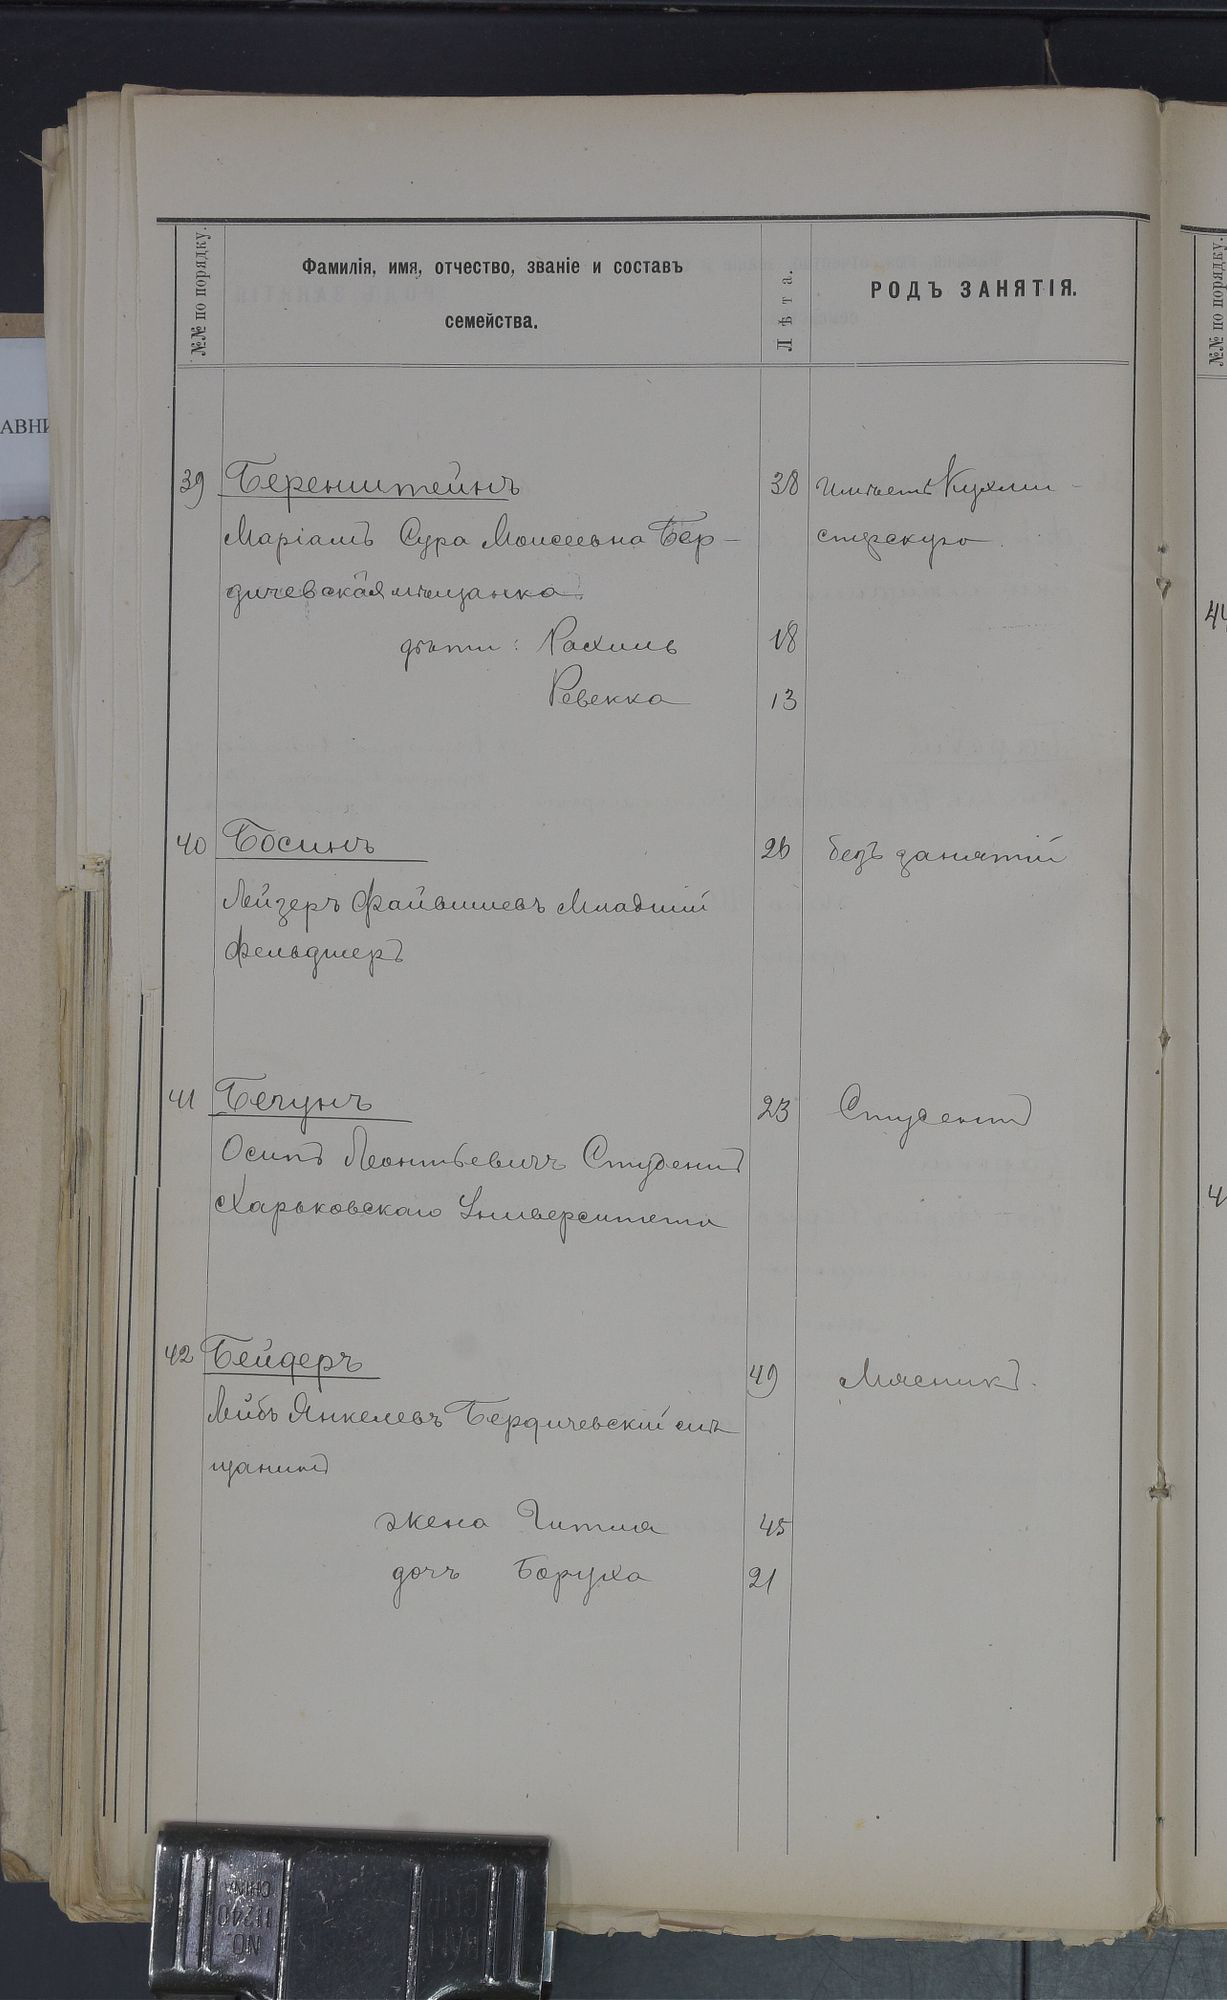 №№ по порядку.
Фамилія, имя, отчество, званіе и составъ
семейства.
Лѣта.
РОДЪ ЗАНЯТІЯ.
39 Беренштейнъ 38 Имѣетъ Кухми-
Маріамъ Сура Моисеевна Бер- стерскую.
дичевская мѣщанка
дѣти: Рахиль 18
Ревекка 13
40 Босинъ 26 безъ занятій
Лейзеръ Файвишевъ Младшій
Фельдшеръ
41 Бегунъ 23 Студентъ
Осипъ Леонтьевичъ Студентъ
Харьковскаго Университета
42 Бейдеръ 49 Мясникъ.
Лейбъ Янкелевъ Бердичевскій мѣ
щанинъ
жена Гитля 45
дочь Боруха 21
№№ по порядку.
АВНИ
NO
11240
CHINA